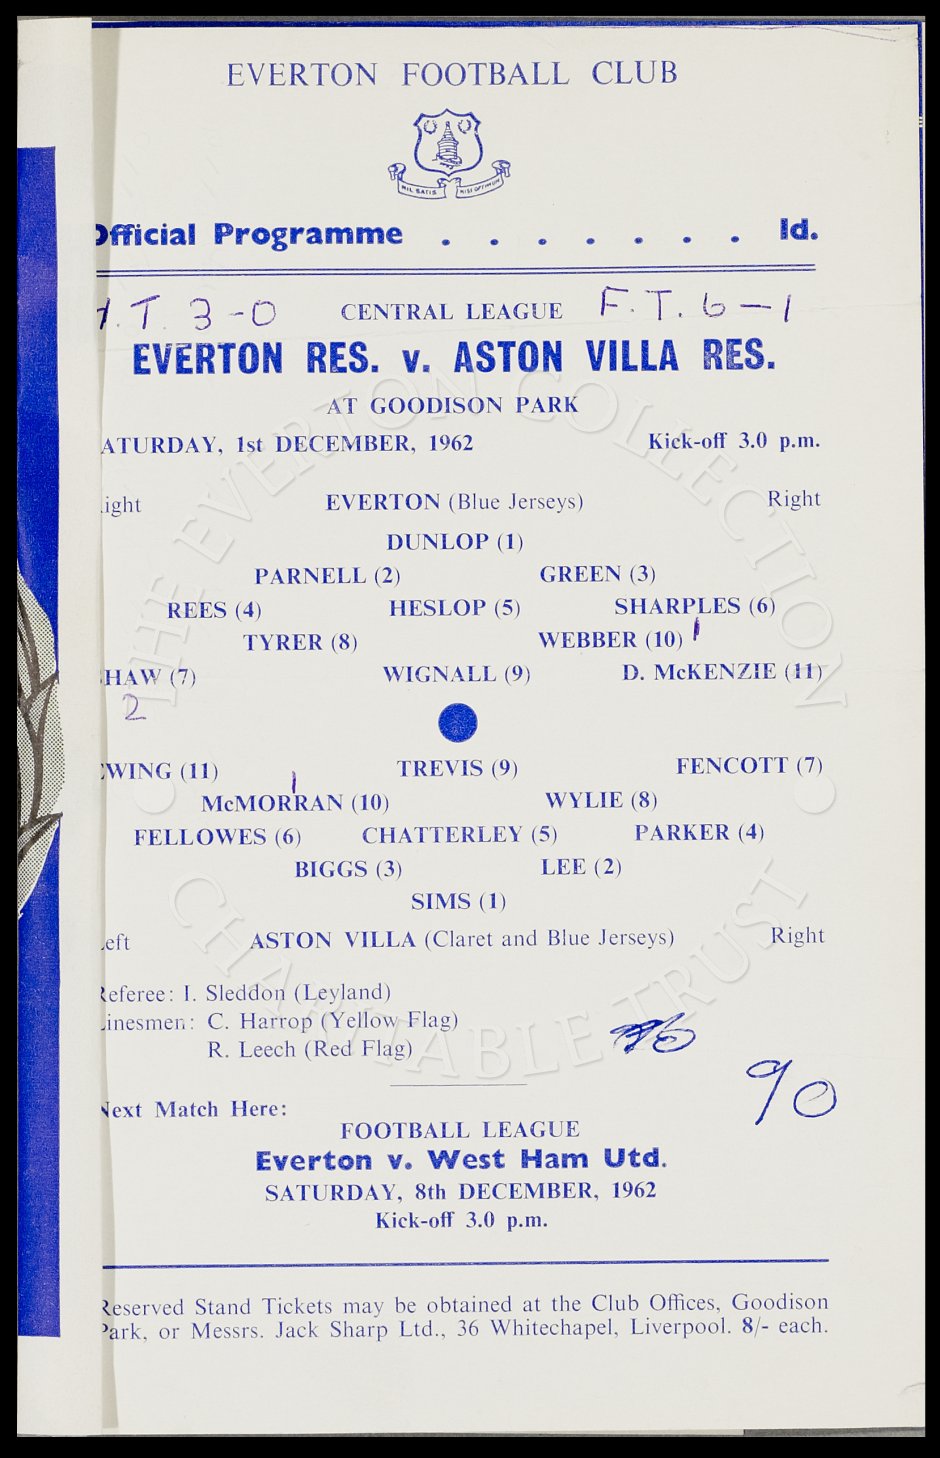 EVERTON FOOTBALL CLUB
NIL SATIS NISI OPTIMUM
Official Programme . . . . . . . 1d.
H.T. 3-0 CENTRAL LEAGUE F.T. 6-1
EVERTON RES. v. ASTON VILLA RES.
AT GOODISON PARK
ATURDAY, 1st DECEMBER, 1962 Kick-off 3.0 p.m.
ight EVERTON (Blue Jerseys) Right
DUNLOP (1)
PARNELL (2) GREEN (3)
REES (4) HESLOP (5) SHARPLES (6)
TYRER (8) WEBBER (10) 1
HAW (7) WIGNALL (9) D. McKENZIE (11)
2
WING (11) TREVIS (9) FENCOTT (7)
McMORRAN (10) WYLIE (8)
FELLOWES (6) CHATTERLEY (5) PARKER (4)
BIGGS (3) LEE (2)
SIMS (1)
eft ASTON VILLA (Claret and Blue Jerseys) Right
Referee: I. Sleddon (Leyland)
inesmen: C. Harrop (Yellow Flag)
R. Leech (Red Flag)
90
Next Match Here:
FOOTBALL LEAGUE
Everton v. West Ham Utd.
SATURDAY, 8th DECEMBER, 1962
Kick-off 3.0 p.m.
Reserved Stand Tickets may be obtained at the Club Offices, Goodison
Park, or Messrs. Jack Sharp Ltd., 36 Whitechapel, Liverpool. 8/- each.
THE EVERTON COLLECTION
CHARITABLE TRUST